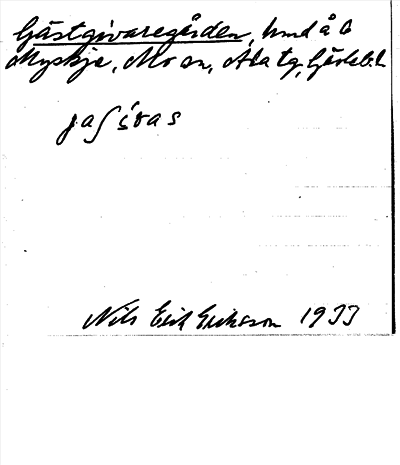 Gästgivaregården, hmd å b
Myskje, Mo sn, Ala tg, Gävleb. l.
jaʃtvas
Nils Erik Eriksson 1933